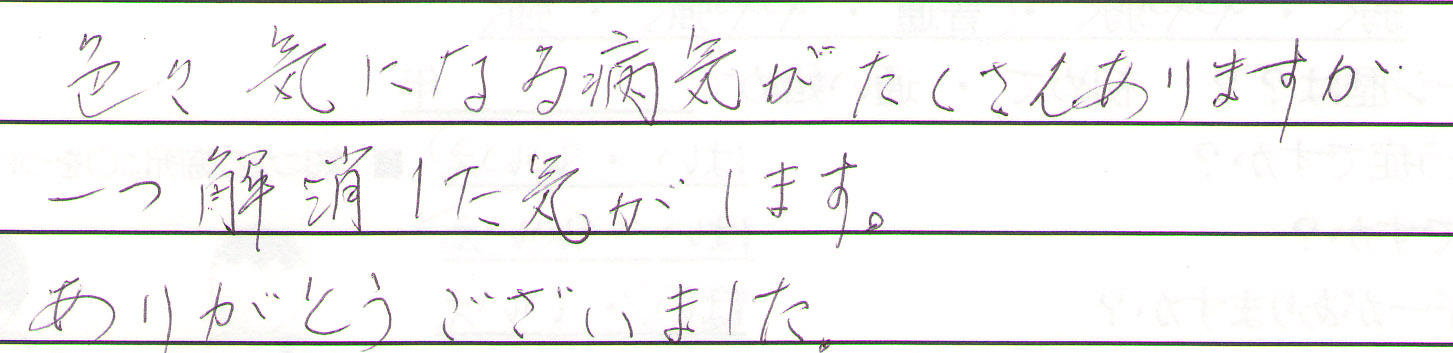 色々気になる病気がたくさんありますが
一つ解消した気がします。
ありがとうございました。